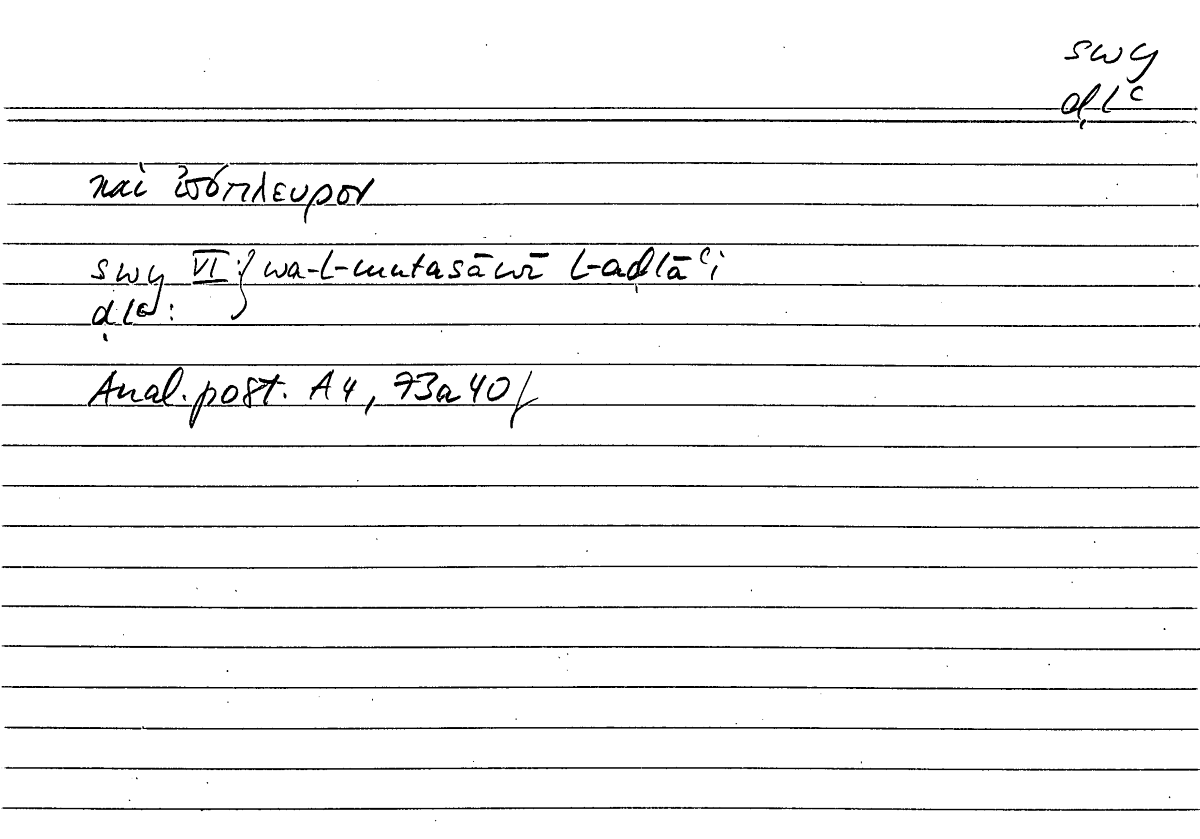 swy
ḍlʿ
καὶ ἰσόπλευρον
swy VI:} wa-l-mutasāwī l-aḍlāʿi
ḍlʿ:
Anal. post. A4, 73a40/